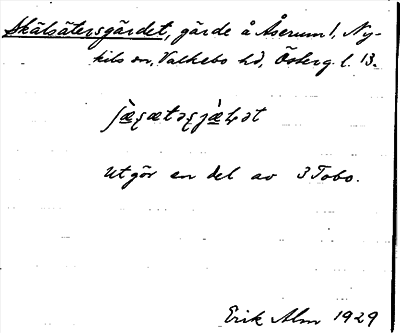 Skälsätersgärdet, gärde å Åserum 1, Ny-
kils sn, Valkebo hd, Österg. l. 13.
Utgör en del av 3 Tobo.
Erik Alm 1929